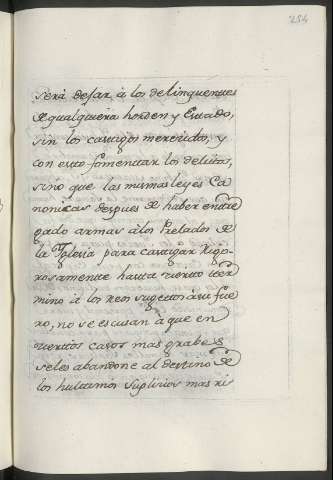 254
sera dejar à los delinquentes
de qualquiera horden y Estado,
sin los castigos merecidos, y
con esto fomentar los delitos,
sino que las mismas leyes Ca
nonicas despues de haber entre
gado armas à los Prelados de
la Yglesia para castigar Rigo
rosamente hasta cierto ter
mino à los reos sugetos à su fue
ro, no se escusan à que en
ciertos casos mas grabes
se les abandone al destino de
los hultimos suplicios mas ris